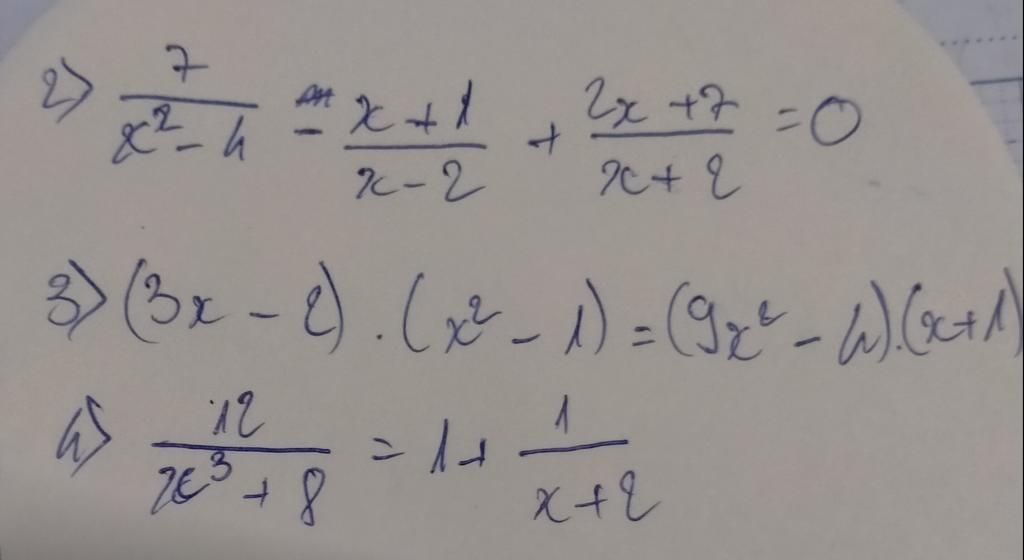 2) 7/(x² - 4) - (x + 1)/(x - 2) + (2x + 7)/(x + 2) = 0
3) (3x - 2) . (x² - 1) = (9x² - 4).(x+1)
4) 12/(x³ + 8) = 1 + 1/(x + 2)